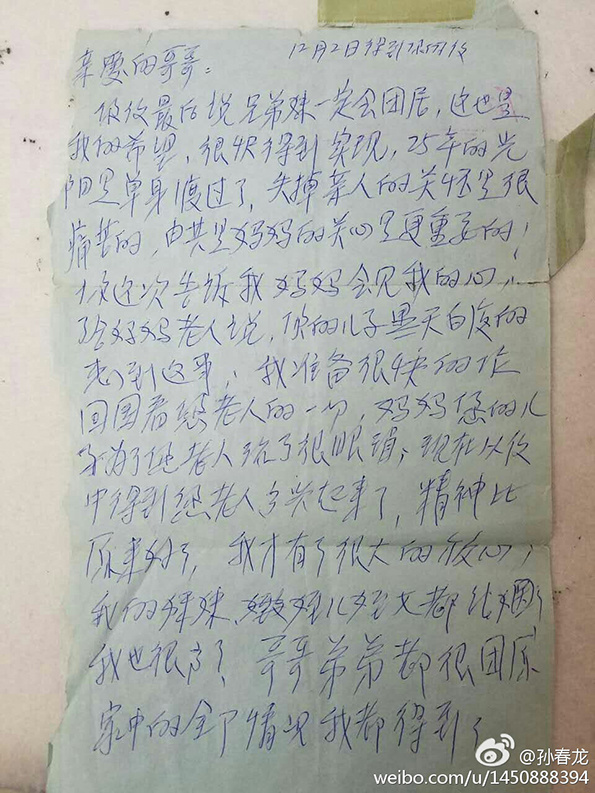 亲爱的哥哥： 12月2日得到
最后说兄弟妹一定会团居，这也是
我的希望，很快得到实现，25年的光
阴是单身渡过了，失掉亲人的关怀是很
痛苦的，由其是妈妈的关心是更重要的；
这次告诉我妈妈会见我的心，
给妈妈老人说，您的儿子黑天白夜的
想到这事；我准备很快的
回国看您老人的一切，妈妈您的儿
子为了您老人流了很眼泪；现在以
中得到您老人高兴起来了，精神比
原来好了，我才有了很大的放心；
我的妹妹、嫂嫂侄儿侄女都结烟了
我也很高，哥哥弟弟都很团原
家中的全部情况我都得到了
@孙春龙
weibo.com/u/1450888394